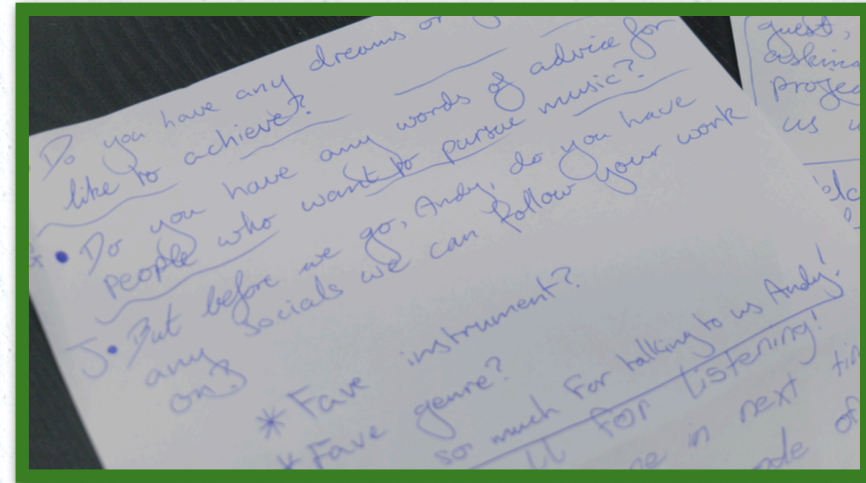 Do you have any dreams or
like to achieve?
• Do you have any words of advice for
people who want to pursue music?
J • But before we go, Andy, do you have
any socials we can follow your work
on?
* Fave instrument?
* Fave genre?
so much for talking to us Andy!
for listening!
in next
of
guest,
asking
projec
us